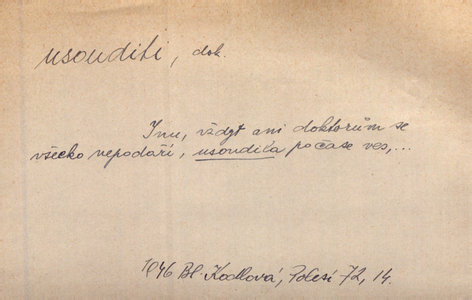 usouditi, dok.
Inu, vždyť ani doktorům se
všecko nepodaří, usoudila počase ves,...
1946 Bl. Kodlová, Polesí 72, 14.